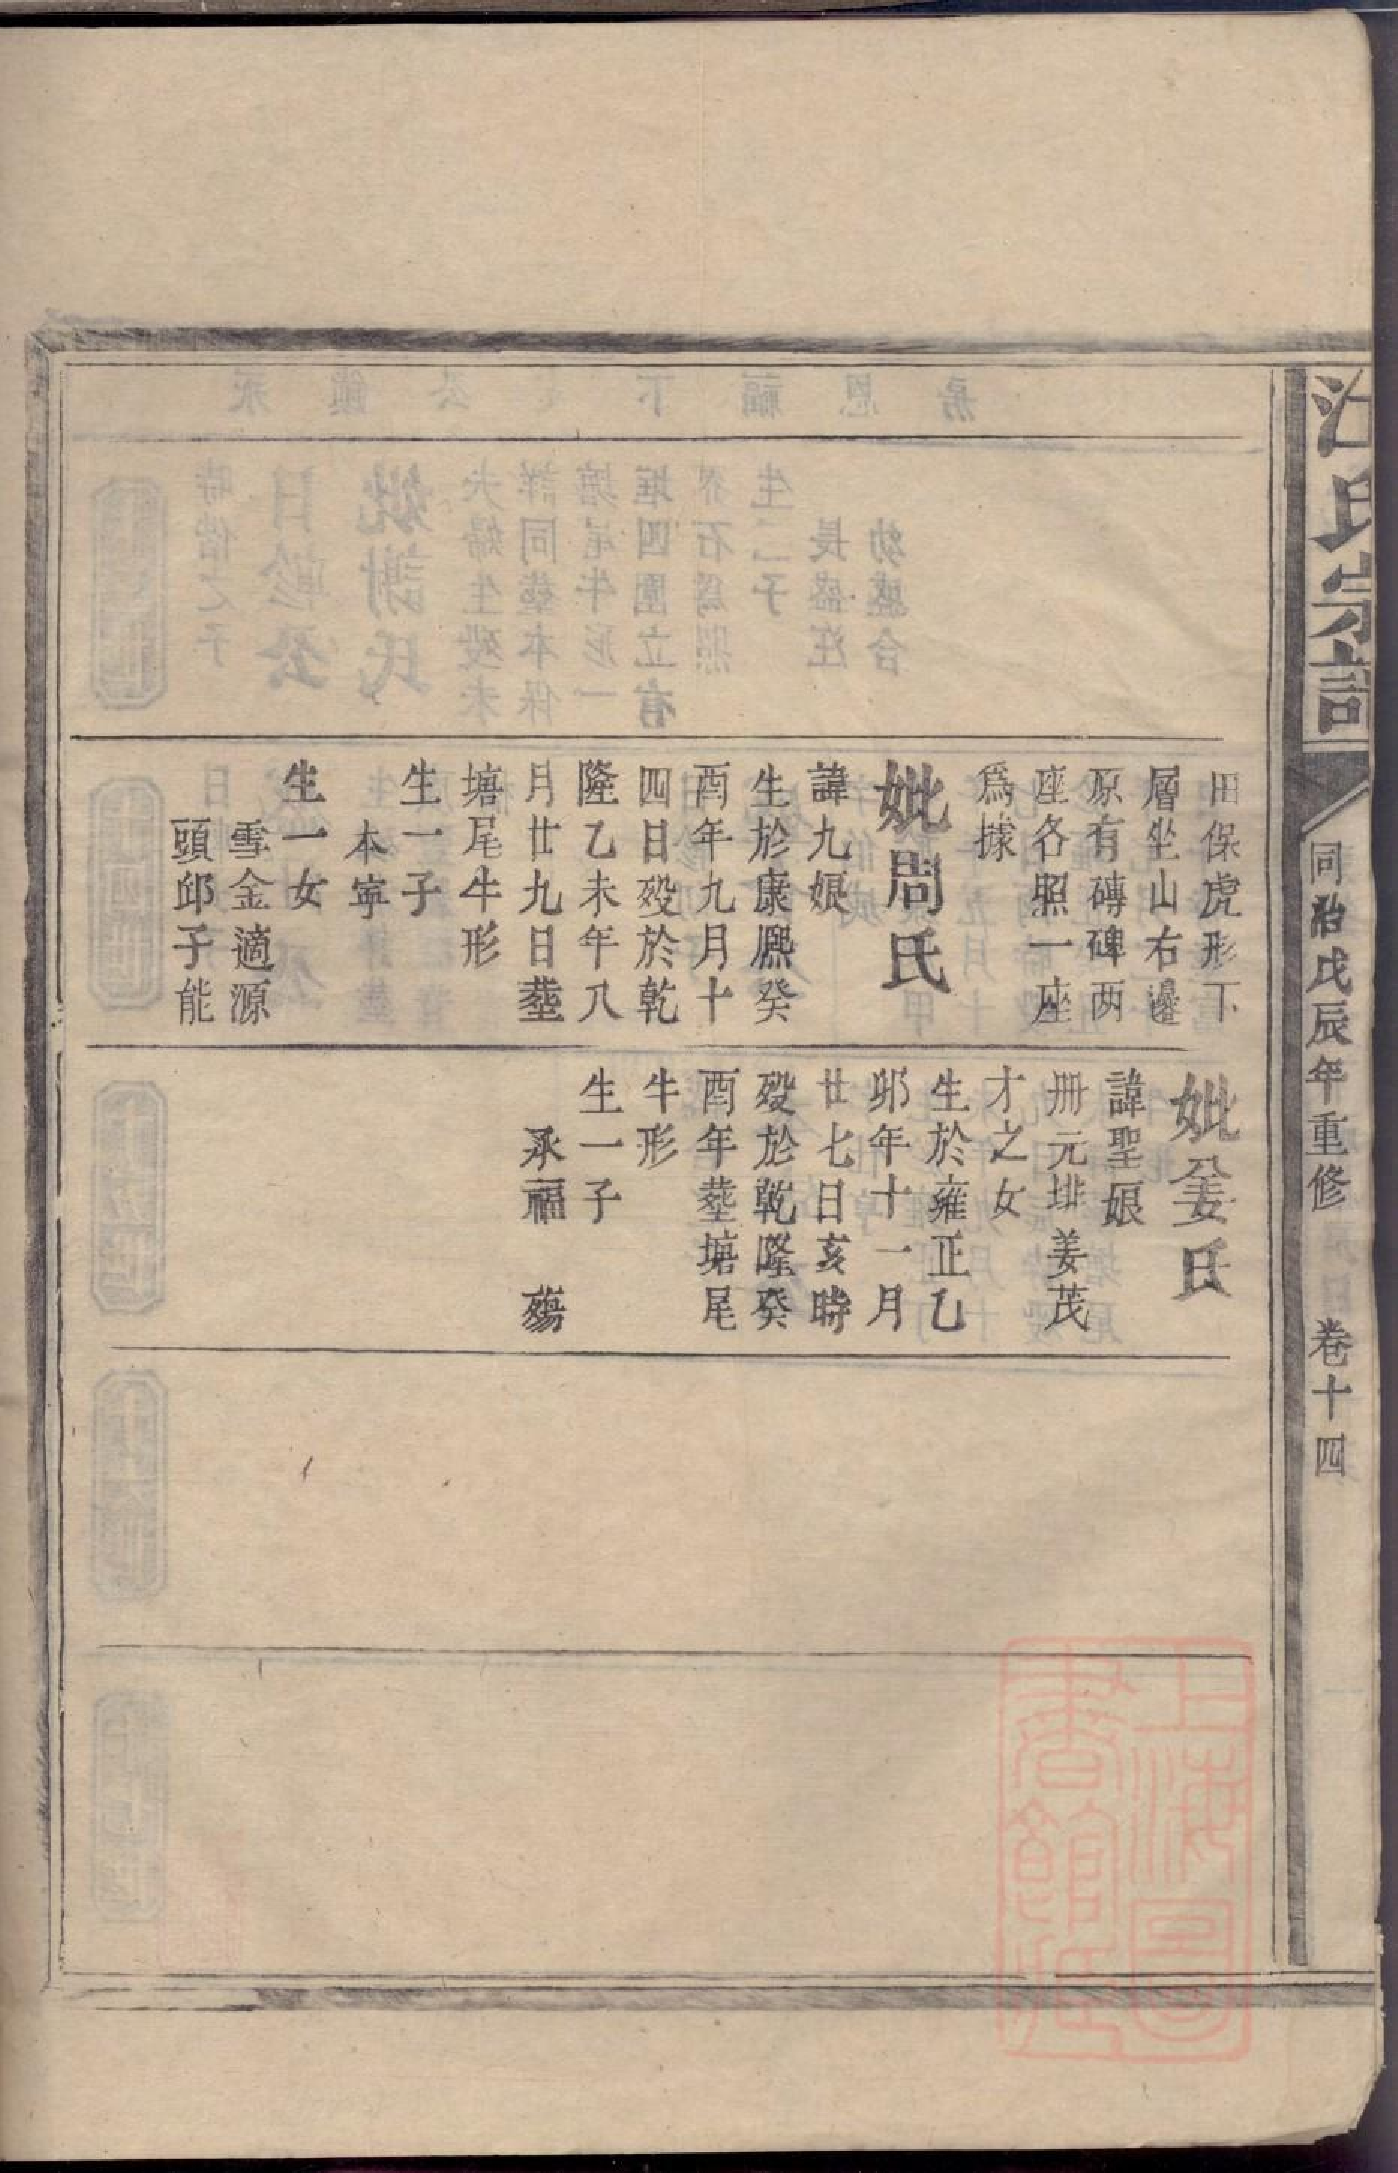 汪氏宗譜
同治戊辰年重修
卷十四
田保虎形下
層坐山右邊
原有磚碑两
座各照一座
爲據
妣周氏
諱九娘
生於康熈癸
酉年九月十
四日殁於乾
隆乙未年八
月廿九日塟
塘尾牛形
生一子
本寕
生一女
雪金適源
頭邱子能
妣姜氏
諱聖娘
冊元排姜茂
才之女
生於雍正乙
卯年十一月
廿七日亥時
殁於乾隆癸
酉年塟塘尾
牛形
生一子
承福 殤
上海圖
書館藏